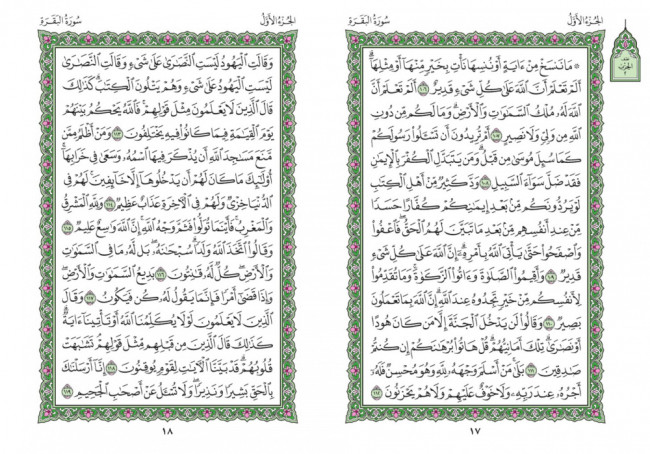 الجزء الأول
سورة البقرة
۞ مَا نَنسَخْ مِنْ ءَايَةٍ أَوْ نُنسِهَا نَأْتِ بِخَيْرٍ مِّنْهَآ أَوْ مِثْلِهَآۗ
أَلَمْ تَعْلَمْ أَنَّ ٱللَّهَ عَلَىٰ كُلِّ شَىْءٍ قَدِيرٌ ١٠٦ أَلَمْ تَعْلَمْ أَنَّ
ٱللَّهَ لَهُۥ مُلْكُ ٱلسَّمَٰوَٰتِ وَٱلْأَرْضِۗ وَمَا لَكُم مِّن دُونِ
ٱللَّهِ مِن وَلِىٍّ وَلَا نَصِيرٍ ١٠٧ أَمْ تُرِيدُونَ أَن تَسْـَٔلُوا۟ رَسُولَكُمْ
كَمَا سُئِلَ مُوسَىٰ مِن قَبْلُۗ وَمَن يَتَبَدَّلِ ٱلْكُفْرَ بِٱلْإِيمَٰنِ
فَقَدْ ضَلَّ سَوَآءَ ٱلسَّبِيلِ ١٠٨ وَدَّ كَثِيرٌ مِّنْ أَهْلِ ٱلْكِتَٰبِ
لَوْ يَرُدُّونَكُم مِّنۢ بَعْدِ إِيمَٰنِكُمْ كُفَّارًا حَسَدًا
مِّنْ عِندِ أَنفُسِهِم مِّنۢ بَعْدِ مَا تَبَيَّنَ لَهُمُ ٱلْحَقُّۖ فَٱعْفُوا۟
وَٱصْفَحُوا۟ حَتَّىٰ يَأْتِىَ ٱللَّهُ بِأَمْرِهِۦٓۗ إِنَّ ٱللَّهَ عَلَىٰ كُلِّ شَىْءٍ
قَدِيرٌ ١٠٩ وَأَقِيمُوا۟ ٱلصَّلَوٰةَ وَءَاتُوا۟ ٱلزَّكَوٰةَۚ وَمَا تُقَدِّمُوا۟
لِأَنفُسِكُم مِّنْ خَيْرٍ تَجِدُوهُ عِندَ ٱللَّهِۗ إِنَّ ٱللَّهَ بِمَا تَعْمَلُونَ
بَصِيرٌ ١١٠ وَقَالُوا۟ لَن يَدْخُلَ ٱلْجَنَّةَ إِلَّا مَن كَانَ هُودًا
أَوْ نَصَٰرَىٰۗ تِلْكَ أَمَانِيُّهُمْۗ قُلْ هَاتُوا۟ بُرْهَٰنَكُمْ إِن كُنتُمْ
صَٰدِقِينَ ١١١ بَلَىٰ مَنْ أَسْلَمَ وَجْهَهُۥ لِلَّهِ وَهُوَ مُحْسِنٌ فَلَهُۥٓ
أَجْرُهُۥ عِندَ رَبِّهِۦ وَلَا خَوْفٌ عَلَيْهِمْ وَلَا هُمْ يَحْزَنُونَ ١١٢
١٧
الجزء الأول
سورة البقرة
وَقَالَتِ ٱلْيَهُودُ لَيْسَتِ ٱلنَّصَٰرَىٰ عَلَىٰ شَىْءٍ وَقَالَتِ ٱلنَّصَٰرَىٰ
لَيْسَتِ ٱلْيَهُودُ عَلَىٰ شَىْءٍ وَهُمْ يَتْلُونَ ٱلْكِتَٰبَۗ كَذَٰلِكَ
قَالَ ٱلَّذِينَ لَا يَعْلَمُونَ مِثْلَ قَوْلِهِمْۚ فَٱللَّهُ يَحْكُمُ بَيْنَهُمْ
يَوْمَ ٱلْقِيَٰمَةِ فِيمَا كَانُوا۟ فِيهِ يَخْتَلِفُونَ ١١٣ وَمَنْ أَظْلَمُ مِمَّن
مَّنَعَ مَسَٰجِدَ ٱللَّهِ أَن يُذْكَرَ فِيهَا ٱسْمُهُۥ وَسَعَىٰ فِى خَرَابِهَآۚ
أُو۟لَٰٓئِكَ مَا كَانَ لَهُمْ أَن يَدْخُلُوهَآ إِلَّا خَآئِفِينَۚ لَهُمْ فِى
ٱلدُّنْيَا خِزْىٌ وَلَهُمْ فِى ٱلْءَاخِرَةِ عَذَابٌ عَظِيمٌ ١١٤ وَلِلَّهِ ٱلْمَشْرِقُ
وَٱلْمَغْرِبُۚ فَأَيْنَمَا تُوَلُّوا۟ فَثَمَّ وَجْهُ ٱللَّهِۚ إِنَّ ٱللَّهَ وَٰسِعٌ عَلِيمٌ ١١٥
وَقَالُوا۟ ٱتَّخَذَ ٱللَّهُ وَلَدًاۗ سُبْحَٰنَهُۥۖ بَل لَّهُۥ مَا فِى ٱلسَّمَٰوَٰتِ
وَٱلْأَرْضِۖ كُلٌّ لَّهُۥ قَٰنِتُونَ ١١٦ بَدِيعُ ٱلسَّمَٰوَٰتِ وَٱلْأَرْضِۖ
وَإِذَا قَضَىٰٓ أَمْرًا فَإِنَّمَا يَقُولُ لَهُۥ كُن فَيَكُونُ ١١٧ وَقَالَ
ٱلَّذِينَ لَا يَعْلَمُونَ لَوْلَا يُكَلِّمُنَا ٱللَّهُ أَوْ تَأْتِينَآ ءَايَةٌۗ
كَذَٰلِكَ قَالَ ٱلَّذِينَ مِن قَبْلِهِم مِّثْلَ قَوْلِهِمْۘ تَشَٰبَهَتْ
قُلُوبُهُمْۗ قَدْ بَيَّنَّا ٱلْءَايَٰتِ لِقَوْمٍ يُوقِنُونَ ١١٨ إِنَّآ أَرْسَلْنَٰكَ
بِٱلْحَقِّ بَشِيرًا وَنَذِيرًاۖ وَلَا تُسْـَٔلُ عَنْ أَصْحَٰبِ ٱلْجَحِيمِ ١١٩
١٨